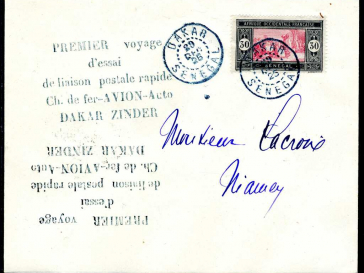 PREMIER voyage
d'essai
de liaison postale rapide
Ch. de fer-AVION-Auto
DAKAR ZINDER
DAKAR
SENEGAL
AFRIQUE OCCIDENTALE FRANÇAISE
50 50
SENEGAL
DAKAR
SENEGAL
Monsieur Lacroix
Niamey
PREMIER voyage
d'essai
de liaison postale rapide
Ch. de fer-AVION-Auto
DAKAR ZINDER